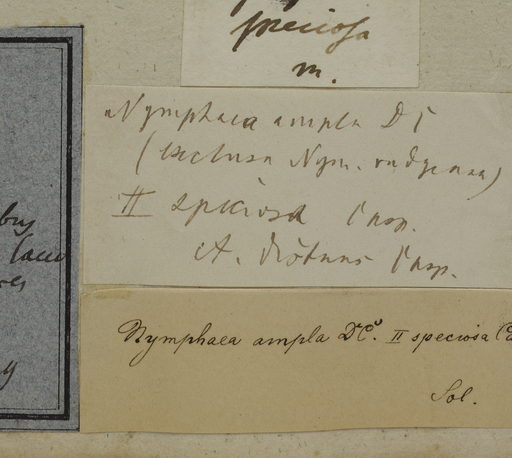 speciosa
m.
Nymphaea ampla DC
(exclusa Nym. rudgeana)
II speciosa Casp.
A. distans Casp.
Nymphaea ampla DC. II speciosa Ca
Sol.
lacu